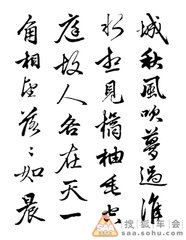 城秋風吹夢過淮
水想見橘柚垂空
庭故人各在天一
角相望落〻如晨
搜狐车会
saa.sohu.com